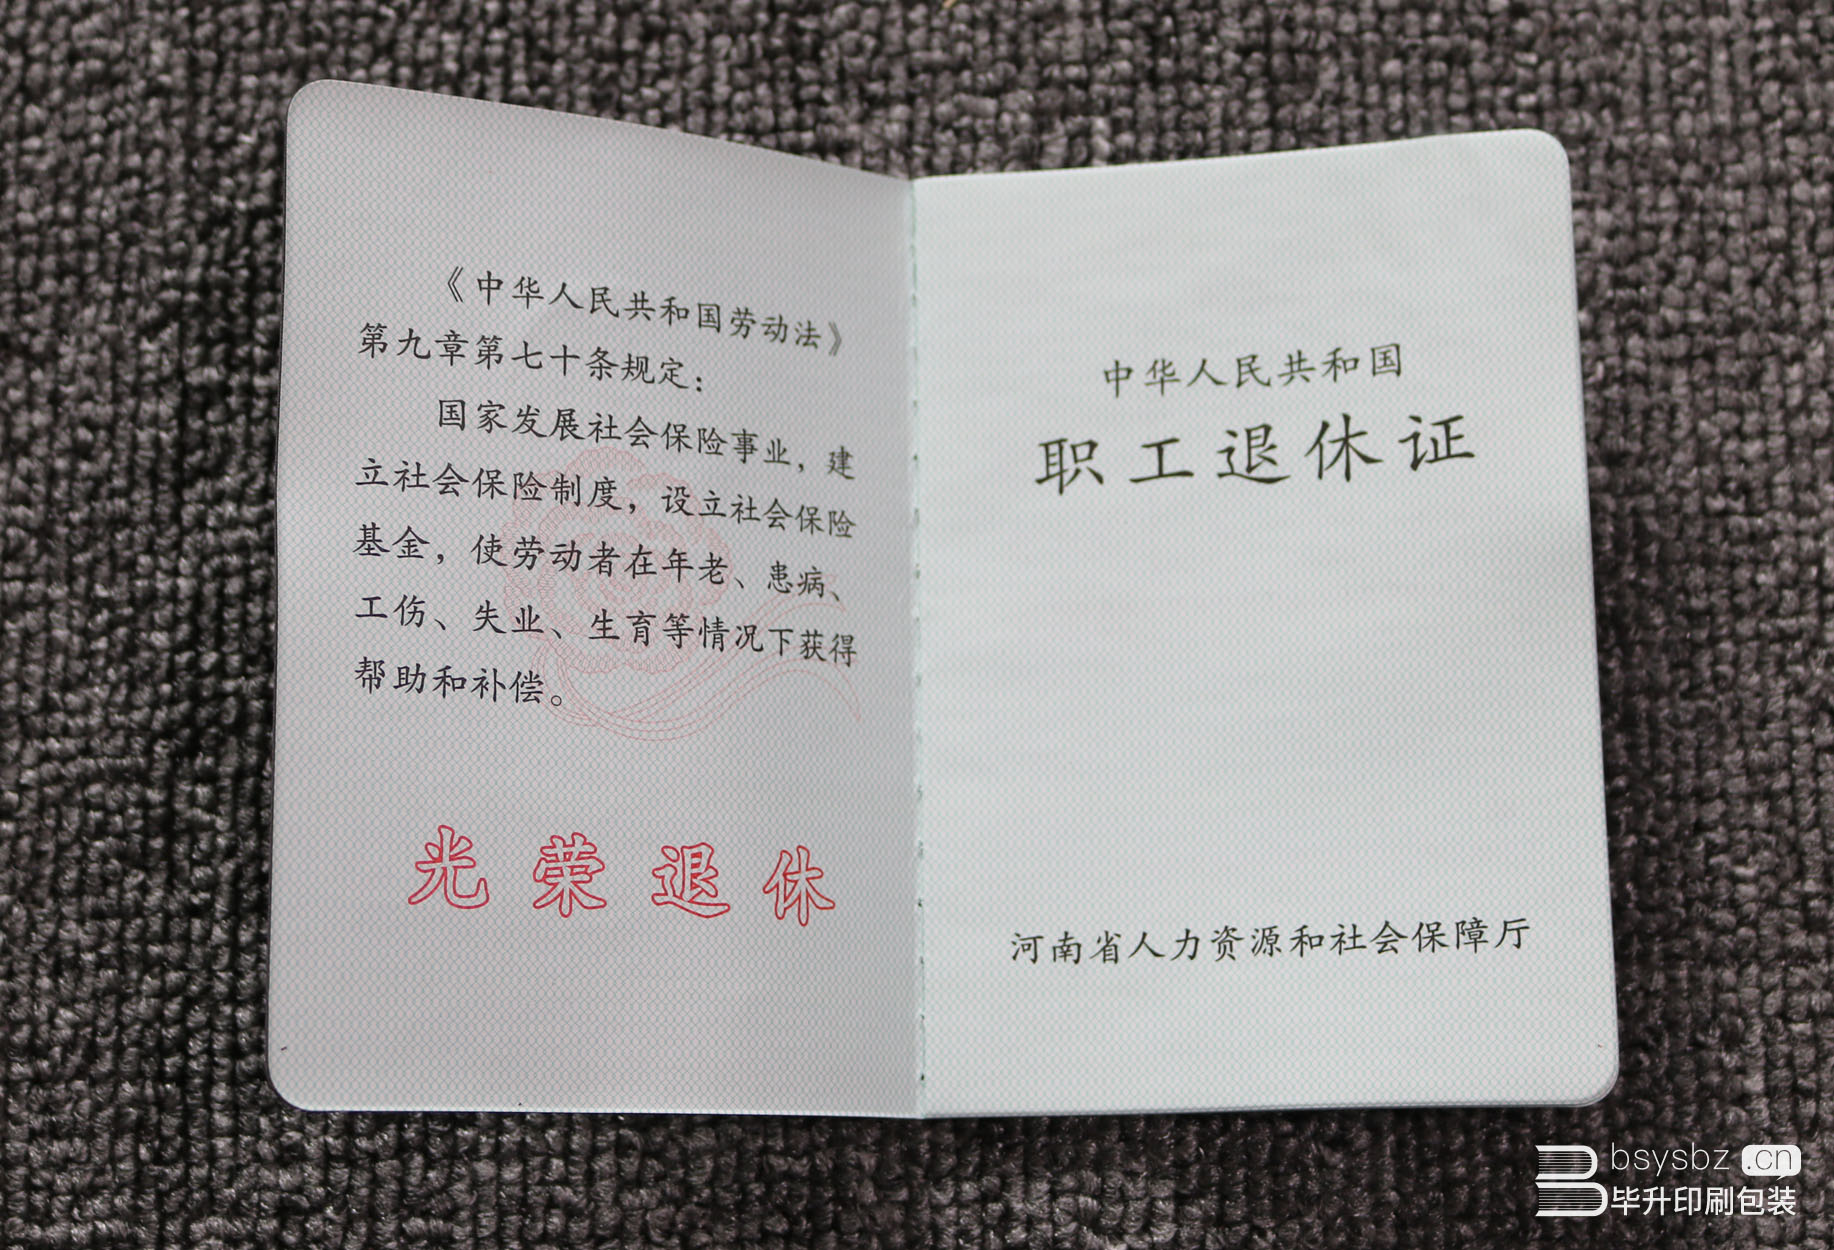 《中华人民共和国劳动法》
第九章第七十条规定：
国家发展社会保险事业，建
立社会保险制度，设立社会保险
基金，使劳动者在年老、患病、
工伤、失业、生育等情况下获得
帮助和补偿。
光荣退休
中华人民共和国
职工退休证
河南省人力资源和社会保障厅
bsysbz.cn
毕升印刷包装